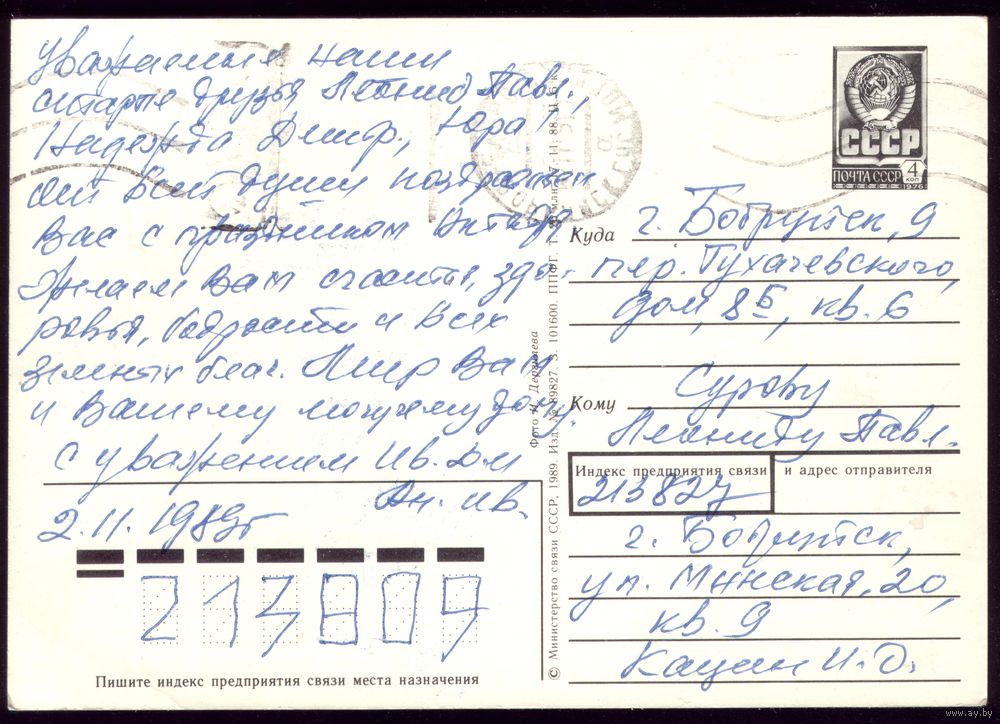 Уважаемые наши
старые друзья Леонид Павл.,
Надежда Дмитр., Юра!
От всей души поздравляем
Вас с праздником Октября
Желаем Вам счастья, здо-
ровья, бодрости и всех
земных благ. Мир Вам
и Вашему могучему дому.
С уважением Ив. Дм
Ан. Ив.
2.11.1989г
213809
Пишите индекс предприятия связи места назначения
СССР
ПОЧТА СССР
4 коп
1976
Куда г. Бобруйск, 9
пер. Тухачевского,
дом, 8Б, кв. 6
Кому Сурову
Леониду Павл.
Индекс предприятия связи и адрес отправителя
213827
г. Бобруйск,
ул. Минская, 20,
кв. 9
Кацин И. Д.
Фото И. Дергилева
© Министерство связи СССР, 1989. Изд. № 89827. З. 101600. ППФГ. Т. млн. 11.88. Ц. 5 к.
www.ay.by